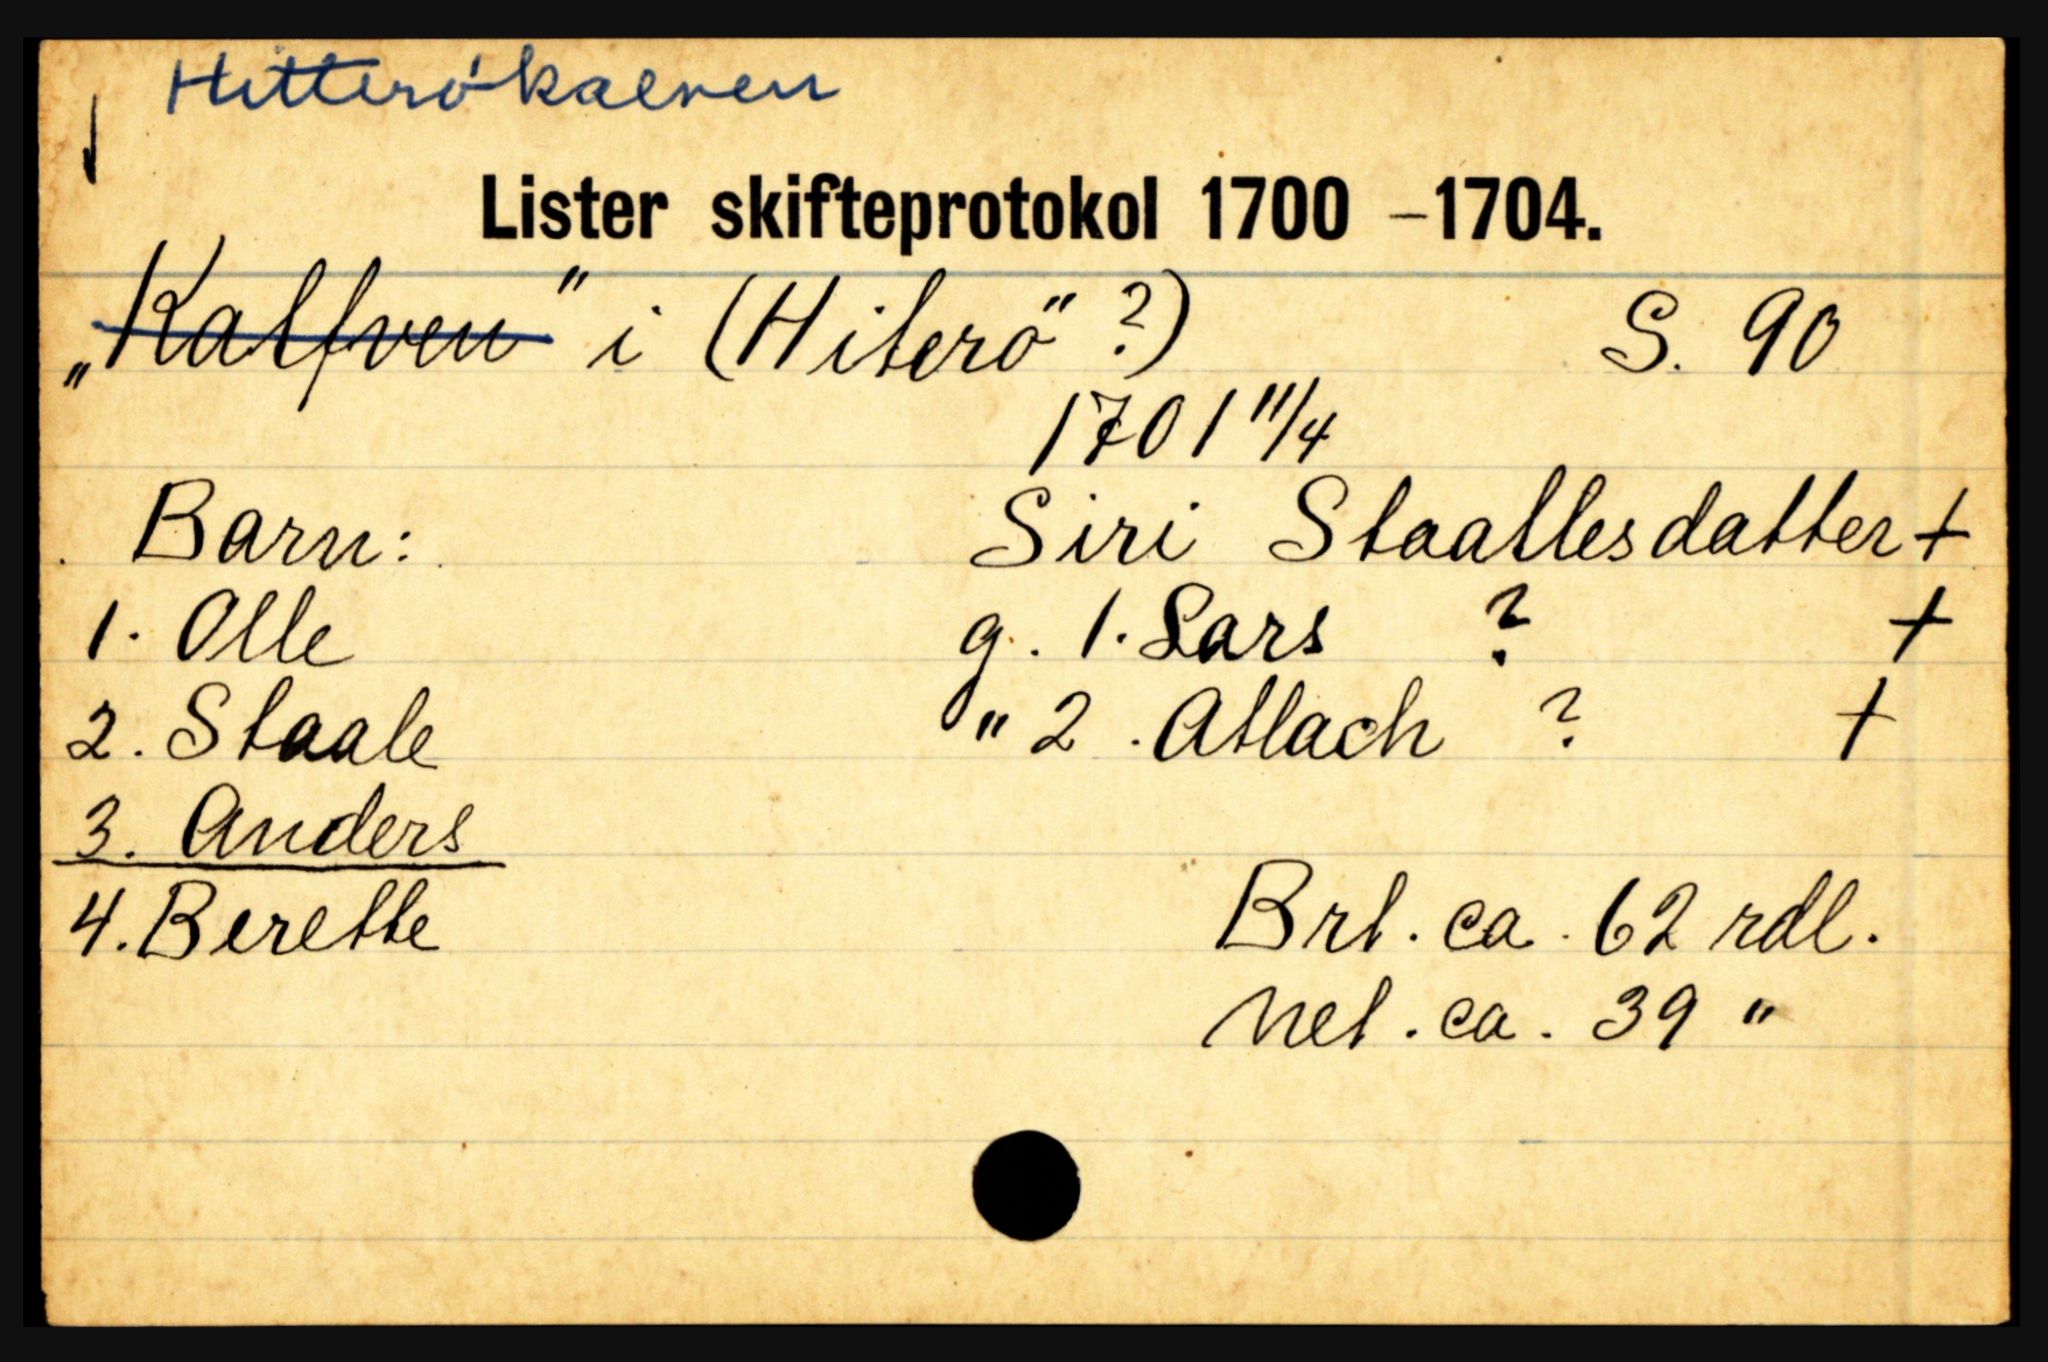 Hitterökalven
Lister skifteprotokol 1700 - 1704.
„Kalfven" i (Hiterö" ?) S. 90
1701 11/4
Barn: Siri Staallesdatter +
1. Olle g. 1. Lars ? +
2. Staale " 2. Atlach ? +
3. Anders
4. Berette Brt. ca. 62 rdl.
Net. ca. 39 "